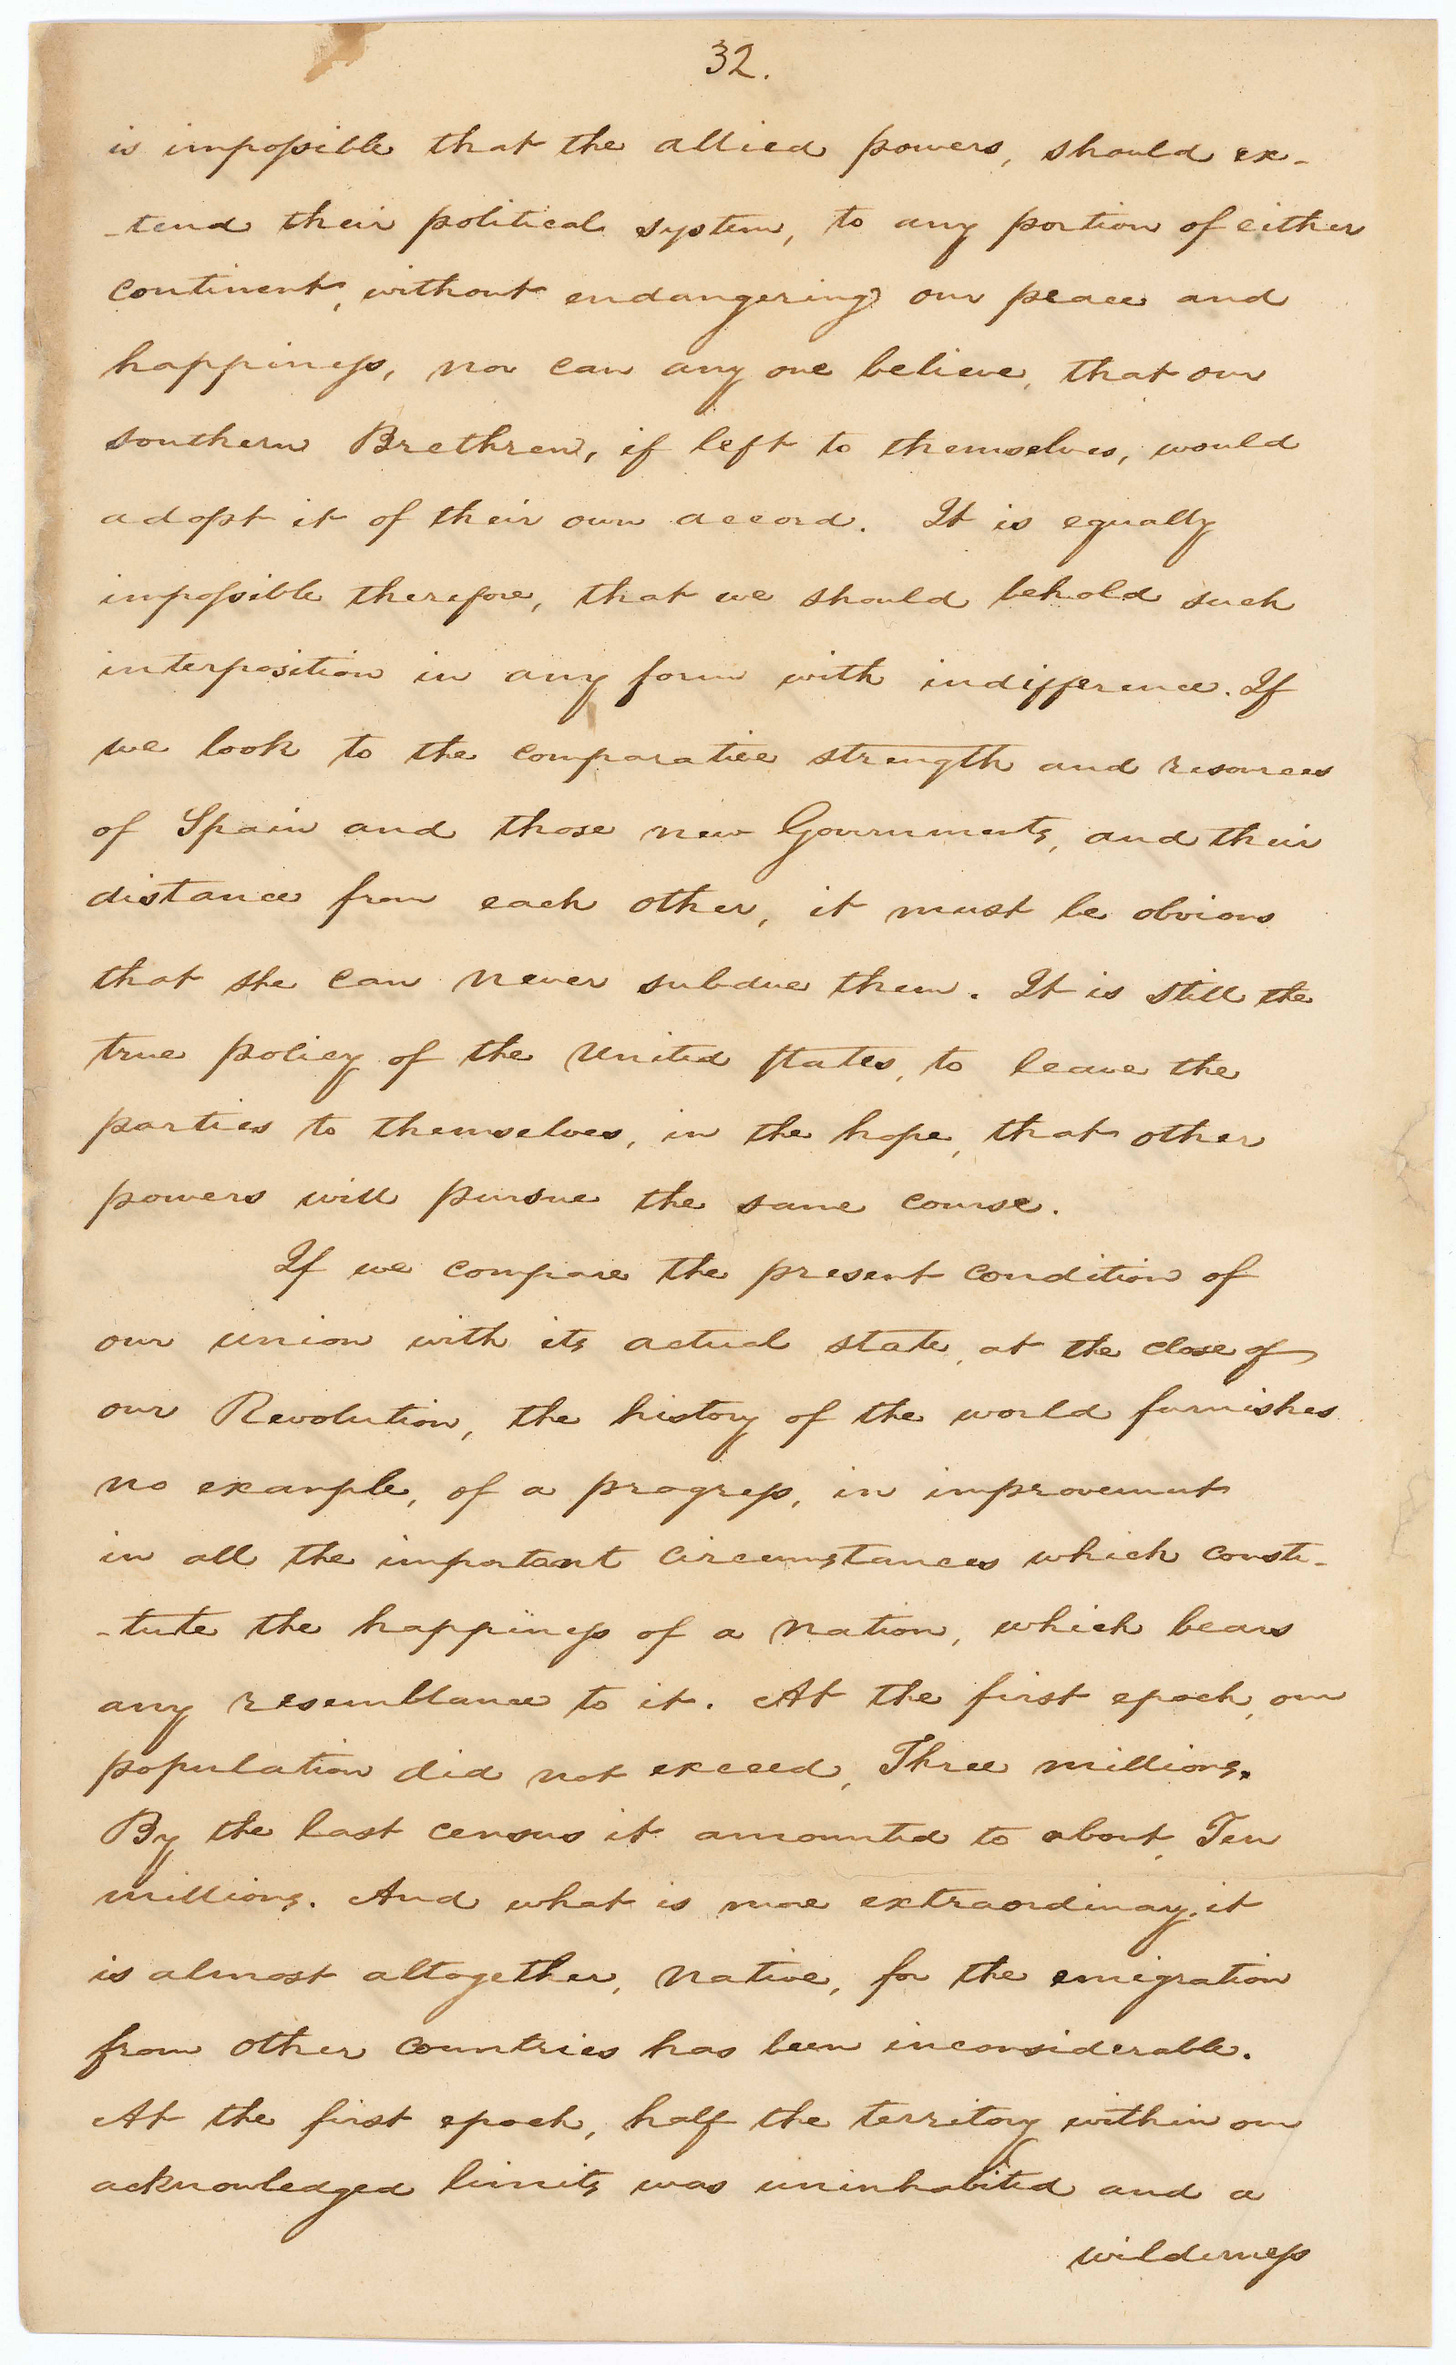 32.
is impossible that the allied powers, should ex-
-tend their political system, to any portion of either
continent, without endangering our peace and
happiness, nor can any one believe, that our
southern Brethren, if left to themselves, would
adopt it of their own accord. It is equally
impossible therefore, that we should behold such
interposition in any form with indifference. If
we look to the comparative strength and resources
of Spain and those new Governments, and their
distance from each other, it must be obvious
that she can never subdue them. It is still the
true policy of the United States, to leave the
parties to themselves, in the hope, that other
powers will pursue the same course.
If we compare the present condition of
our union with its actual state, at the close of
our Revolution, the history of the world furnishes
no example, of a progress, in improvement
in all the important circumstances which consti-
-tute the happiness of a nation, which bears
any resemblance to it. At the first epoch, our
population did not exceed, Three millions.
By the last census it amounted to about, Ten
millions. And what is more extraordinary, it
is almost altogether, native, for the emigration
from other countries has been inconsiderable.
At the first epoch, half the territory within our
acknowledged limits was uninhabited and a
wilderness